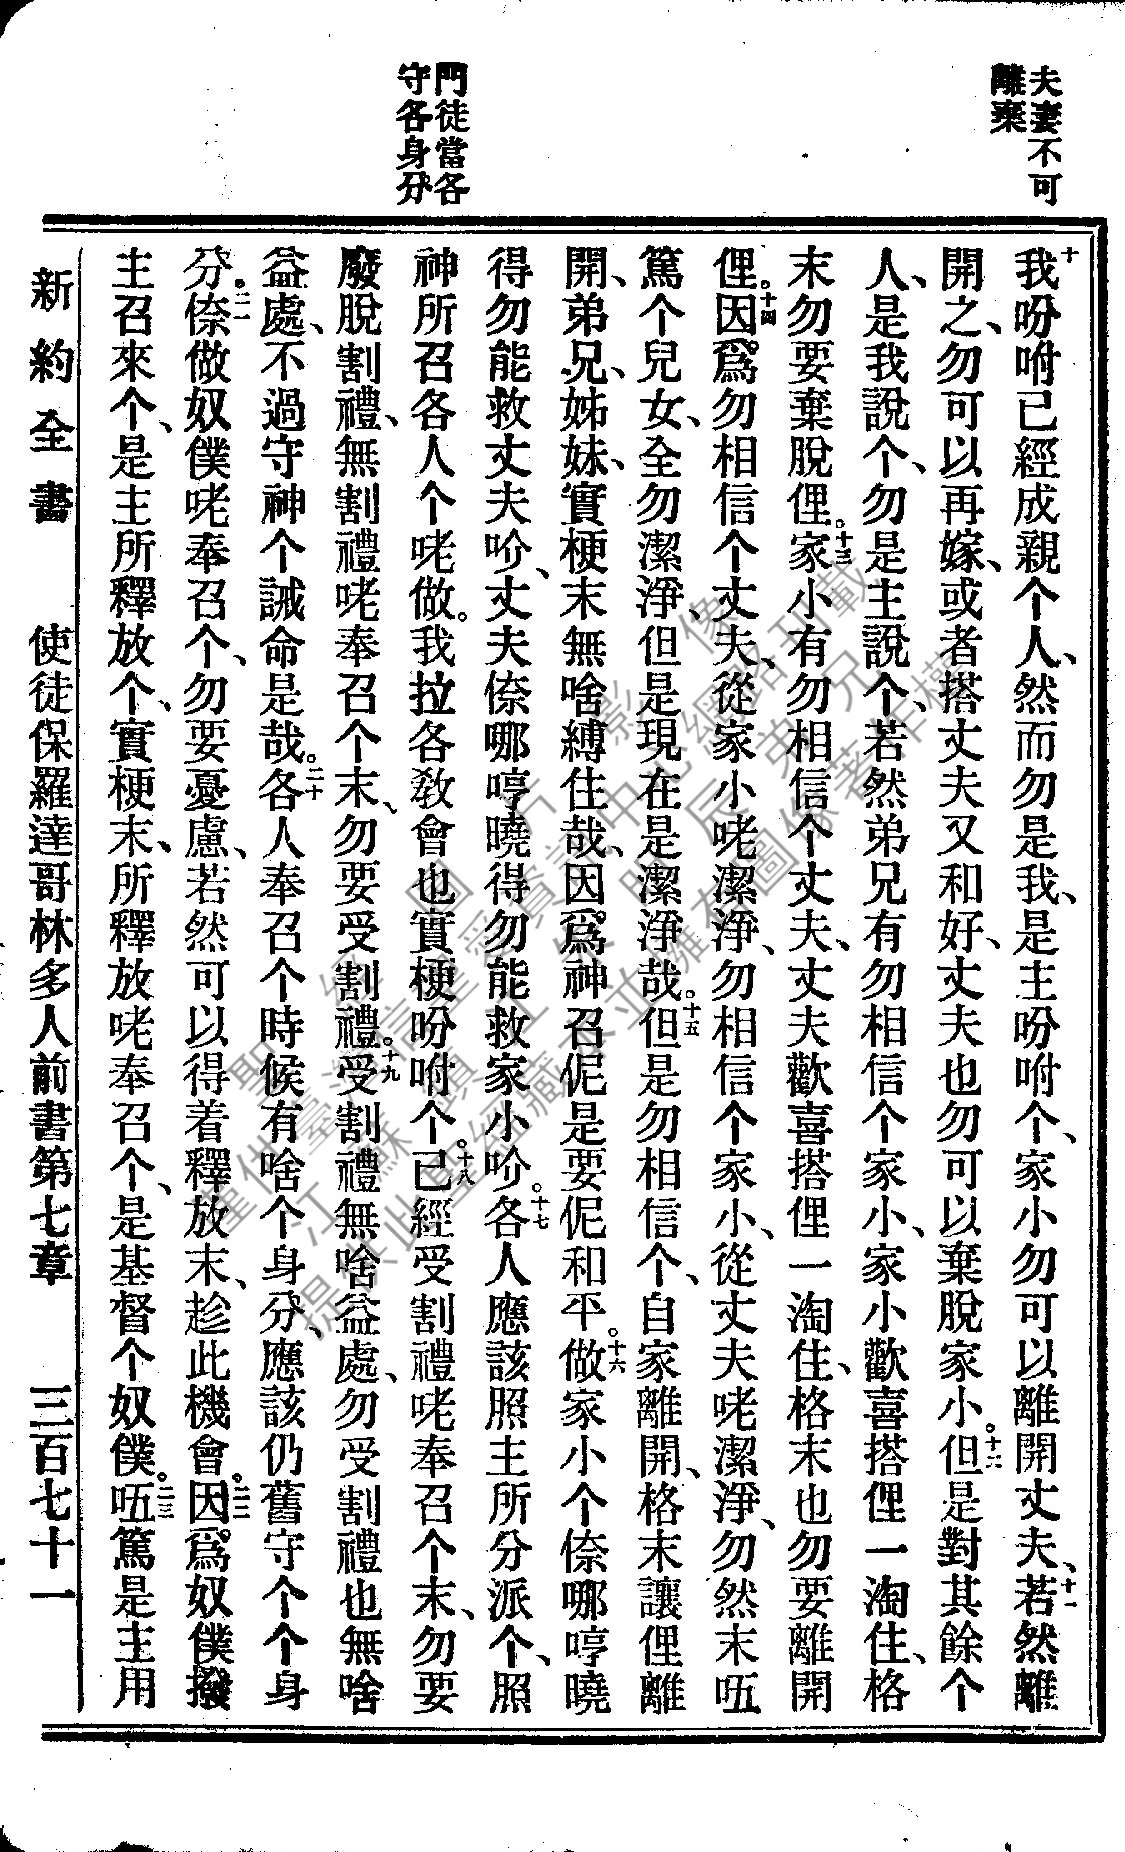 夫妻不可
離棄
門徒當各
守各身分
十我吩咐已經成親个人、然而勿是我、是主吩咐个、家小勿可以離開丈夫、十一若然離
開之、勿可以再嫁、或者搭丈夫又和好、丈夫也勿可以棄脫家小。十二但是對其餘个
人、是我說个、勿是主說个、若然弟兄有勿相信个家小、家小歡喜搭俚一淘住、格
末勿要棄脫俚。十三家小有勿相信个丈夫、丈夫歡喜搭俚一淘住、格末也勿要離開
俚。十四因爲勿相信个丈夫、從家小咾潔淨、勿相信个家小、從丈夫咾潔淨、勿然末㕶
篤个兒女、全勿潔淨、但是現在是潔淨哉。十五但是勿相信个、自家離開、格末讓俚離
開、弟兄、姊妹、實梗末無啥縛住哉、因爲神召伲是要伲和平。十六做家小个倷哪哼曉
得勿能救丈夫吤、丈夫倷哪哼曉得勿能救家小吤。十七各人應該照主所分派个、照
神所召各人个咾做。我拉各敎會也實梗吩咐个。十八已經受割禮咾奉召个末、勿要
廢脫割禮、無割禮咾奉召个末、勿要受割禮。十九受割禮無啥益處、勿受割禮也無啥
益處、不過守神个誡命是哉。二十各人奉召个時候有啥个身分、應該仍舊守个个身
分。二一倷做奴僕咾奉召个、勿要憂慮、若然可以得着釋放末、趁此機會。二二因爲奴僕撥
主召來个、是主所釋放个、實梗末、所釋放咾奉召个、是基督个奴僕。二三㕶篤是主用
新約全書　使徒保羅達哥林多人前書第七章　三百七十一
聖經圖片影像
謹供臺灣信望愛資訊中心網路刊載
江蘇鎮江教友明辰弟兄
提供此聖經藏本並擁有圖像著作權